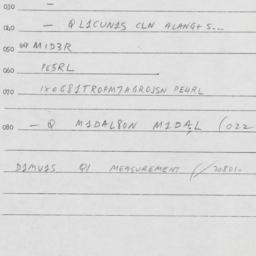 030 —
040 — Q L1CUN1S CLN ALANG+S...
050 M1D3R
060 PE5RL
070 1X0G81TR0FM7AGR0J5N PE4RL
080 — Q M1DAL8ON M1DA,L (022
D1MU1S Q1 MEASUREMENT (/208010